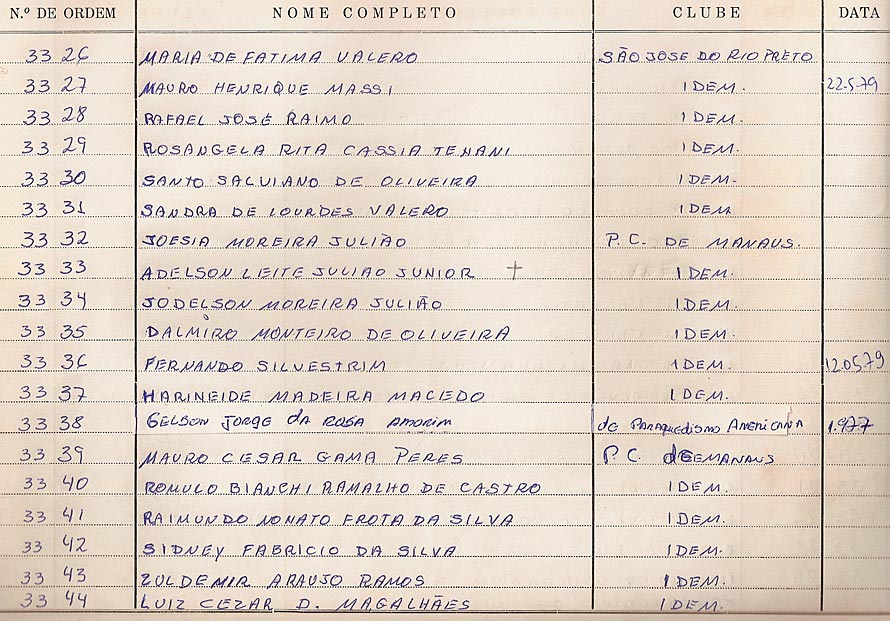 N.º DE ORDEM NOME COMPLETO CLUBE DATA
33 26 MARIA DE FATIMA VALERO SÃO JOSE DO RIO PRETO
33 27 MAURO HENRIQUE MASSI IDEM. 22.5.79
33 28 RAFAEL JOSÉ RAIMO IDEM.
33 29 ROSANGELA RITA CASSIA TENANI IDEM.
33 30 SANTO SALVIANO DE OLIVEIRA IDEM.
33 31 SANDRA DE LOURDES VALERO IDEM
33 32 JOESIA MOREIRA JULIÃO P.C. DE MANAUS.
33 33 ADELSON LEITE JULIAO JUNIOR † IDEM.
33 34 JODELSON MOREIRA JULIÃO IDEM.
33 35 DALMIRO MONTEIRO DE OLIVEIRA IDEM.
33 36 FERNANDO SILVESTRIM IDEM. 12.05.79
33 37 HARINEIDE MADEIRA MACEDO IDEM.
33 38 GELSON JORGE da ROSA AMORIM de PARAQUEDISMO AMERICANA 1.977
33 39 MAURO CESAR GAMA PERES P.C. DE MANAUS
33 40 ROMULO BIANCHI RAMALHO DE CASTRO IDEM.
33 41 RAIMUNDO NONATO FROTA DA SILVA IDEM.
33 42 SIDNEY FABRICIO DA SILVA IDEM.
33 43 ZULDEMIR ARAUJO RAMOS IDEM.
33 44 LUIZ CEZAR D. MAGALHÃES IDEM.